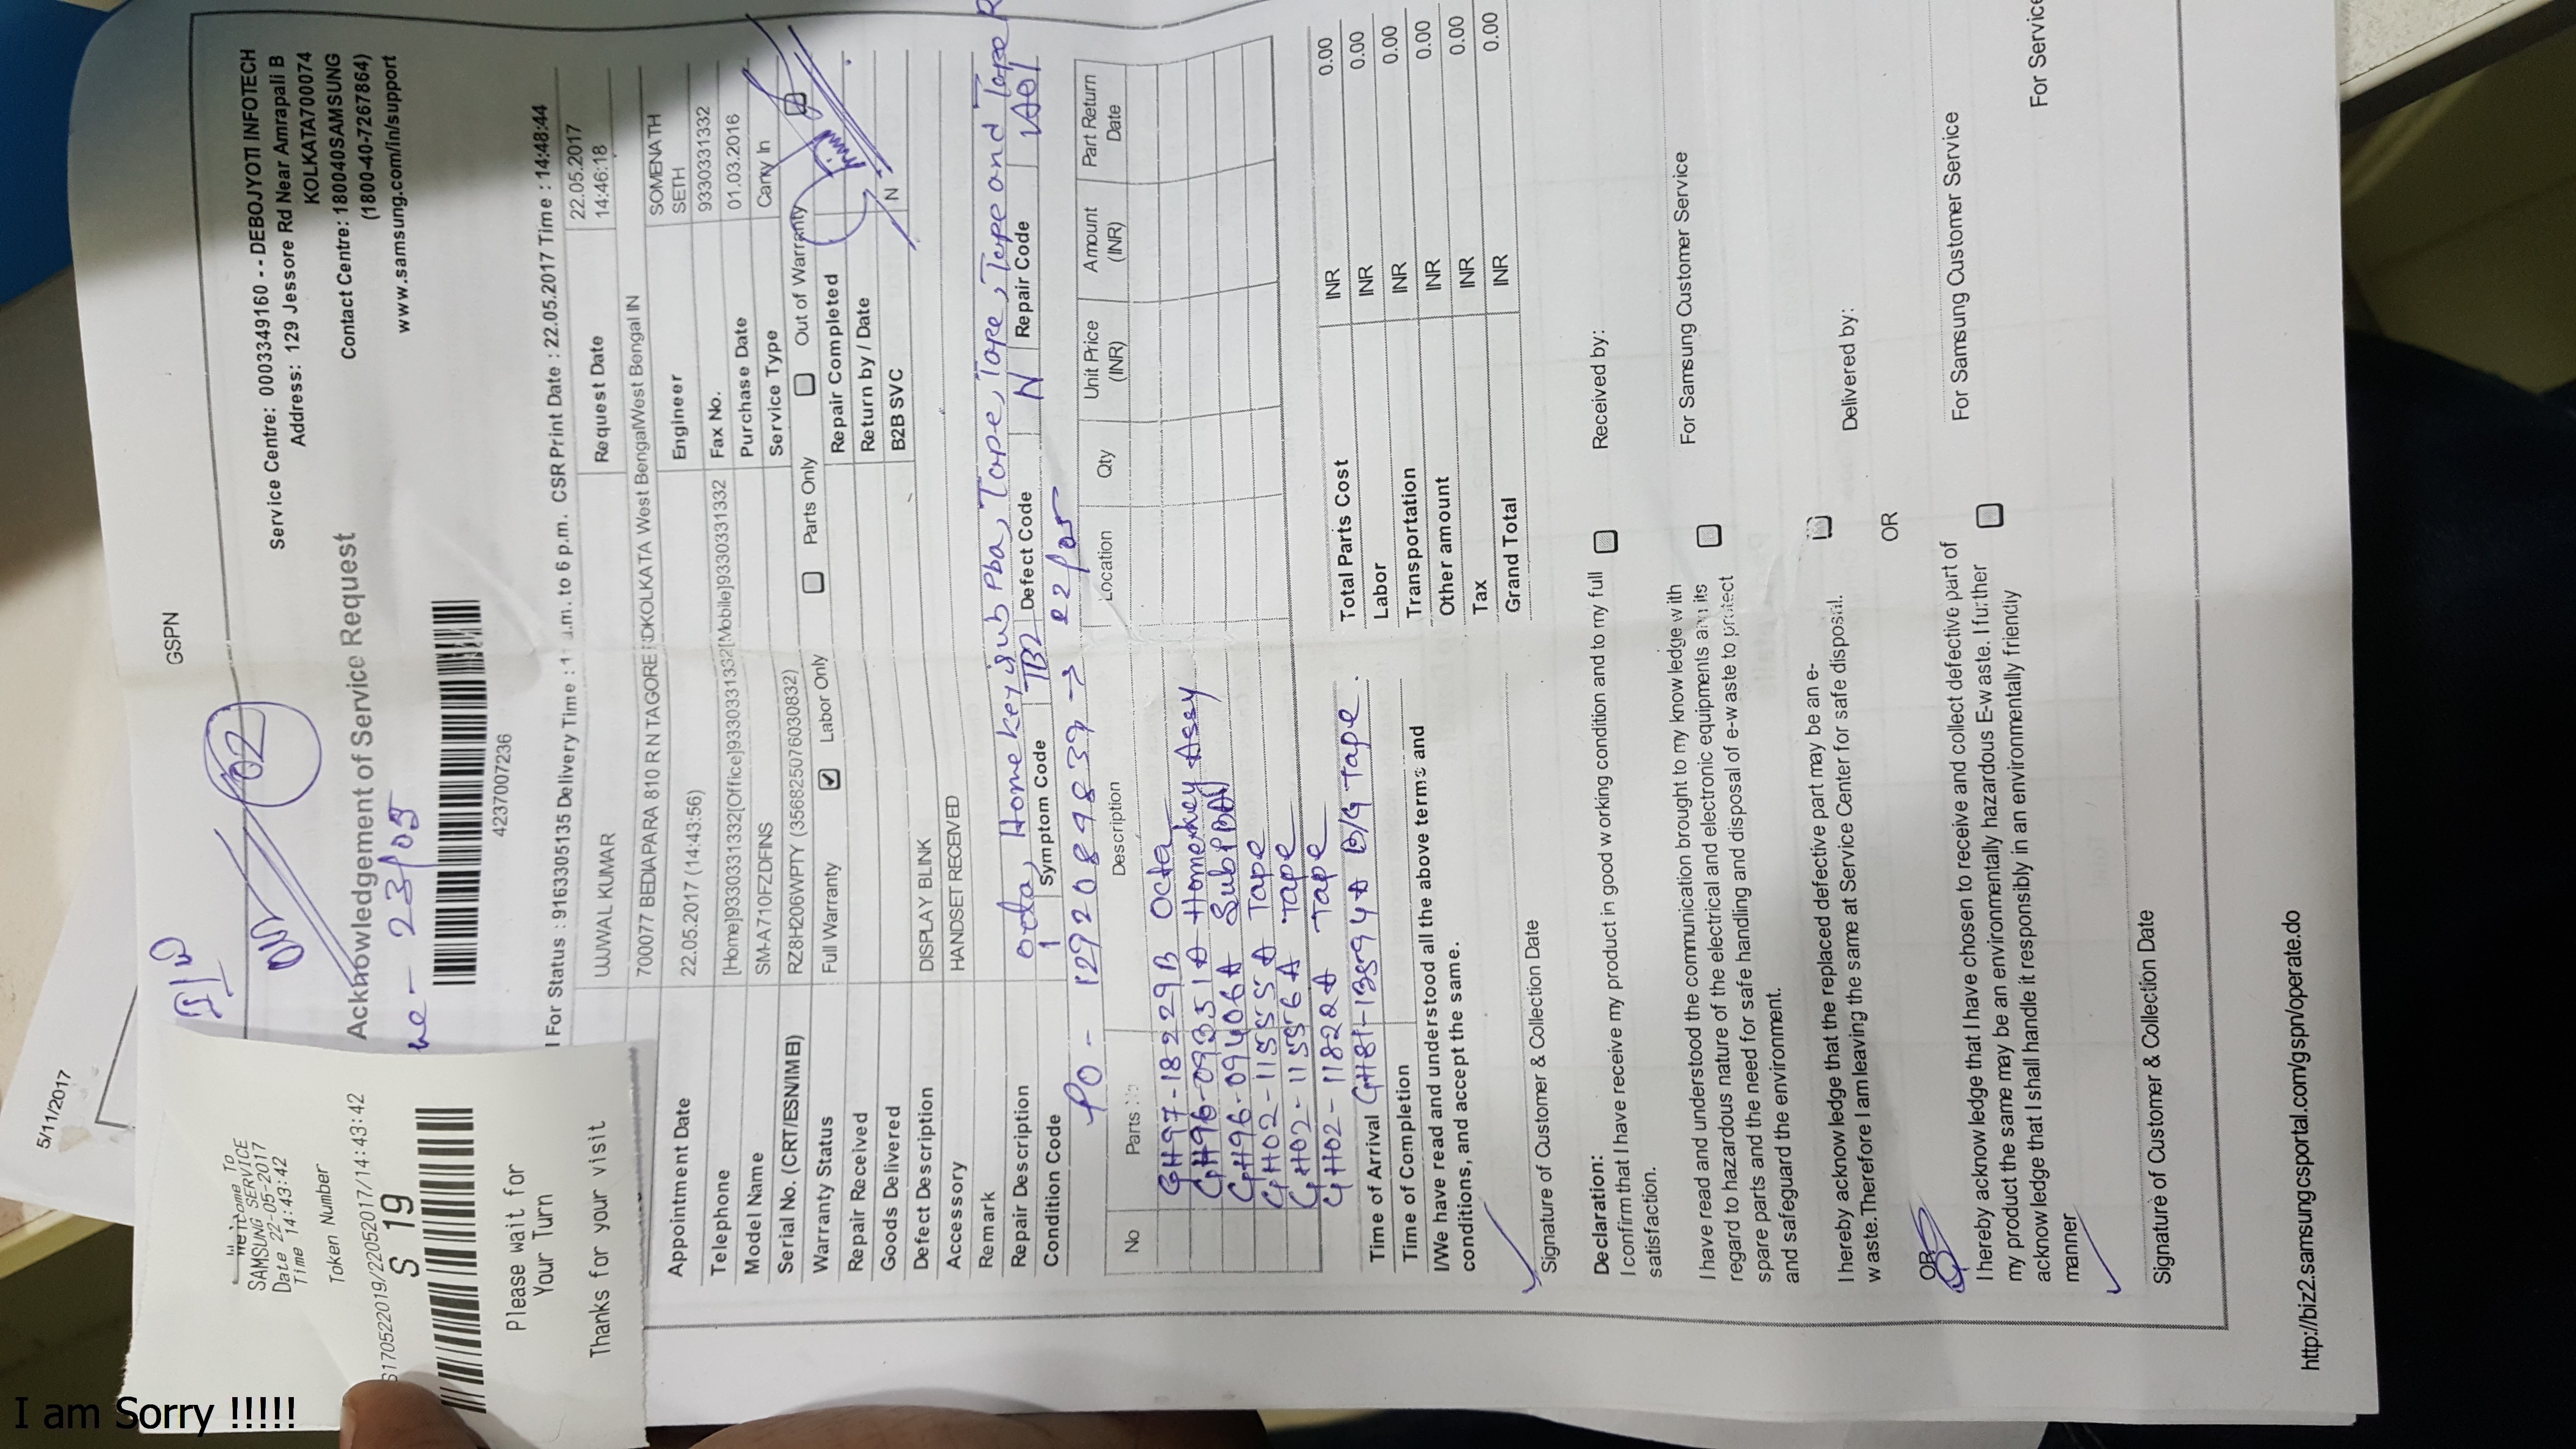 I am Sorry !!!!!
5/11/2017
GSPN
Welcome To
SAMSUNG SERVICE
Date 22-05-2017
Time 14:43:42
Token Number
S170522019/22052017/14:43:42
S 19
Please wait for
Your Turn
Thanks for your visit
Service Centre: 0003349160 - - DEBOJYOTI INFOTECH
Address: 129 Jessore Rd Near Amrapali B
KOLKATA700074
Contact Centre: 180040SAMSUNG
(1800-40-7267864)
www.samsung.com/in/support
02
Acknowledgement of Service Request
23/05
4237007236
For Status : 9163305135 Delivery Time : 11 a.m. to 6 p.m. CSR Print Date : 22.05.2017 Time : 14:48:44
UJJWAL KUMAR Request Date 22.05.2017
14:46:18
700077 BEDIAPARA 810 R N TAGORE RDKOLKATA West BengalWest Bengal IN
Appointment Date 22.05.2017 (14:43:56) Engineer SOMENATH
SETH
Telephone [Home]9330331332[Office]9330331332[Mobile]9330331332 Fax No. 9330331332
Model Name SM-A710FZDFINS Purchase Date 01.03.2016
Serial No. (CRT/ESN/IMEI) RZ8H206WPTY (356825076030832) Service Type Carry In
Warranty Status Full Warranty Labor Only Parts Only Out of Warranty
Repair Received Repair Completed
Goods Delivered Return by / Date
Defect Description DISPLAY BLINK B2B SVC N
Accessory HANDSET RECEIVED
Remark
Repair Description octa, Home key, sub Pba, Tape, Tape, Tape and Tape R
Condition Code 1 Symptom Code TB2 Defect Code N Repair Code A01
PO - 1292089839 → 22/05
No Parts No Description Location Qty Unit Price
(INR) Amount
(INR) Part Return
Date
GH97-18229B Octa
GH96-09351A Homekey Assy
GH96-09406A Sub PBA
GH02-11555A Tape
GH02-11556A Tape
GH02-11822A Tape
GH81-13594A B/G Tape.
Total Parts Cost INR 0.00
Labor INR 0.00
Transportation INR 0.00
Other amount INR 0.00
Tax INR 0.00
Grand Total INR 0.00
Time of Arrival
Time of Completion
I/We have read and understood all the above terms and
conditions, and accept the same.
Signature of Customer & Collection Date
Declaration:
I confirm that I have receive my product in good working condition and to my full
satisfaction.
Received by:
I have read and understood the communication brought to my knowledge with
regard to hazardous nature of the electrical and electronic equipments and its
spare parts and the need for safe handling and disposal of e-waste to protect
and safeguard the environment.
For Samsung Customer Service
I hereby acknowledge that the replaced defective part may be an e-
waste.Therefore I am leaving the same at Service Center for safe disposal.
Delivered by:
OR
OR
I hereby acknowledge that I have chosen to receive and collect defective part of
my product the same may be an environmentally hazardous E-waste. I further
acknowledge that I shall handle it responsibly in an environmentally friendly
manner
For Samsung Customer Service
Signature of Customer & Collection Date
For Service
http://biz2.samsungcsportal.com/gspn/operate.do